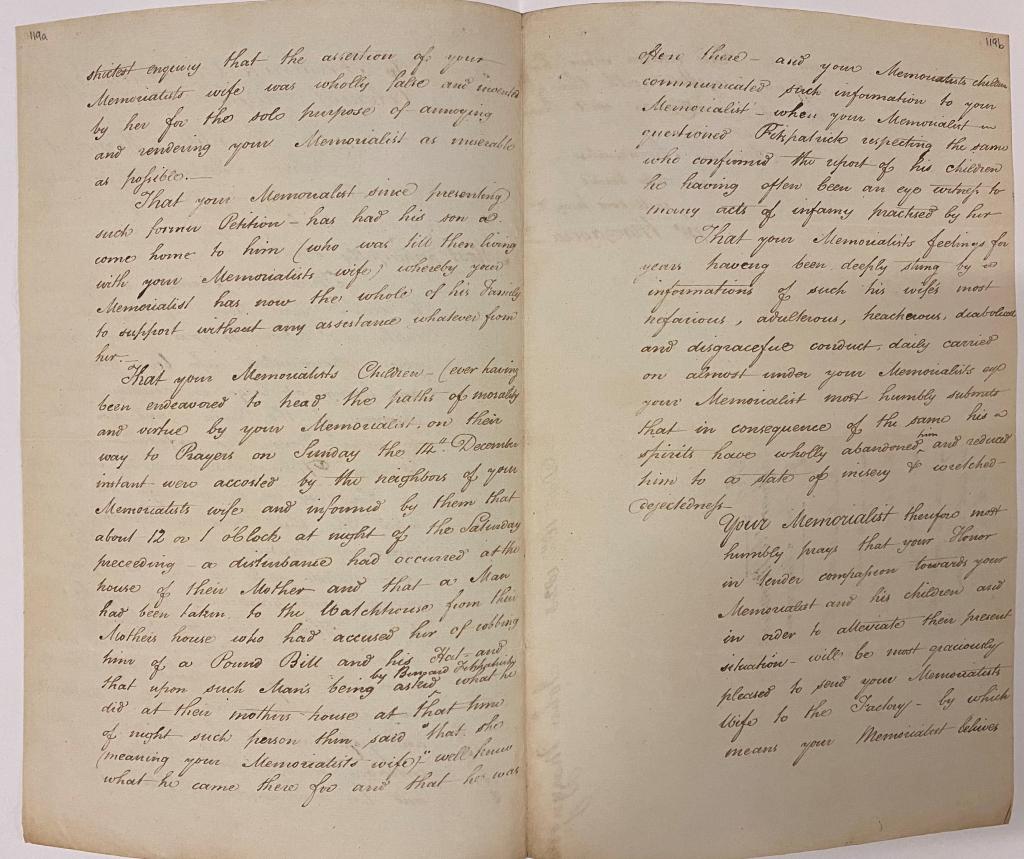 119a
strictest enquiry that the assertion of your
Memorialists wife was wholly false and invented
by her for the sole purpose of annoying
and rendering your Memorialist as miserable
as possible.—
That your Memorialist since presenting
such former Petition – has had his son
come home to him (who was till then living
with your Memorialists wife) whereby your
Memorialist has now the whole of his Family
to support without any assistance whatever from
her.—
That your Memorialists Children – (ever having
been endeavored to tread the paths of morality
and virtue by your Memorialist, on their
way to Prayers on Sunday the 14th December
instant were accosted by the neighbors of your
Memorialists wife and informed by them that
about 12 or 1 oClock at night of the Saturday
preceeding – a disturbance had occurred at the
house of their Mother and that a Man
had been taken to the Watchhouse from their
Mothers house who had accused her of robbing
him of a Pound Bill and his Hat – and
that upon such Man's being asked by Fitzpatrick what he
did at their mothers house at that time
of night such person then said "that she
(meaning your Memorialists wife)" well knew
what he came there for and that he was
119b
often there – and your Memorialists children
communicated such information to your
Memorialist – when your Memorialist
questioned Fitzpatrick respecting the same
who confirmed the report of his children
he having often been an eye witness to
many acts of infamy practised by her
That your Memorialists feelings for
years haveng been deeply stung by
informations of such his wife's most
nefarious, adulterous, treacherous, diabolical
and disgraceful conduct, daily carried
on almost under your Memorialists eye
your Memorialist most humbly submits
that in consequence of the same his
spirits have wholly abandoned him and reduced
him to a state of misery & wretched–
dejectedness
Your Memorialist therefore most
humbly prays that your Honor
in tender compassion towards your
Memorialist and his children and
in order to alleviate their present
situation – will be most graciously
pleased to send your Memorialists
Wife to the Factory – by which
means your Memorialist believes